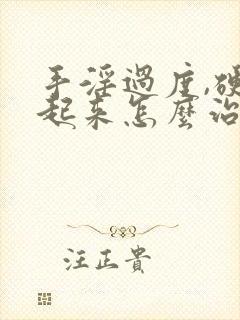 手淫過度,硬
起來怎麼治
汪正貴